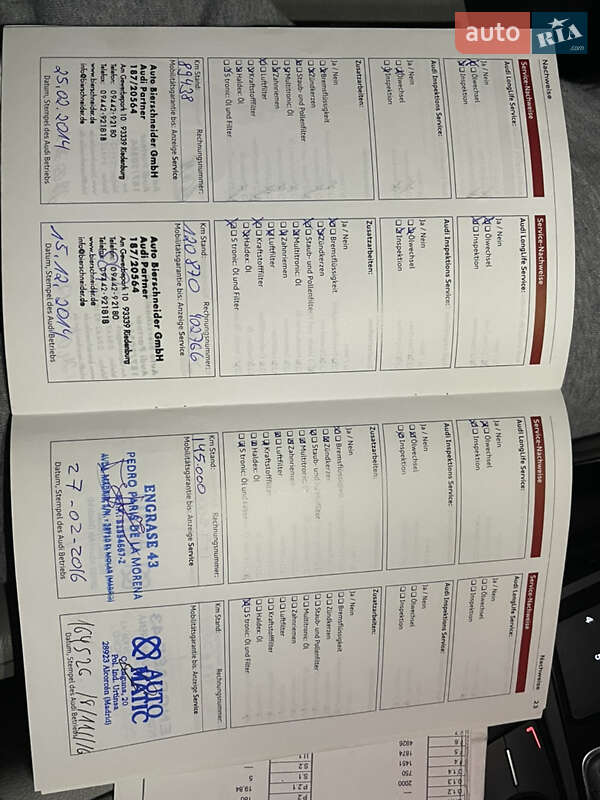 auto
RIA
.com
Nachweise
Service-Nachweise
Audi LongLife Service:
Ja / Nein
Ölwechsel
Inspektion
Audi Inspektions Service:
Ja / Nein
Ölwechsel
Inspektion
Zusatzarbeiten:
Ja / Nein
Bremsflüssigkeit
Zündkerzen
Staub- und Pollenfilter
Multitronic: Öl
Zahnriemen
Luftfilter
Kraftstofffilter
Haldex: Öl
S tronic: Öl und Filter
Km Stand:
Rechnungsnummer:
89438
Mobilitätsgarantie bis: Anzeige Service
Auto Bierschneider GmbH
Audi Partner
187/20564
Am Gewerbepark 10 93339 Riedenburg
Telefon: 09442-92180
Telefax: 09442-921818
www.bierschneider.de
info@bierschneider.de
25.02.2014
Datum, Stempel des Audi Betriebs
Service-Nachweise
Audi LongLife Service:
Ja / Nein
Ölwechsel
Inspektion
Audi Inspektions Service:
Ja / Nein
Ölwechsel
Inspektion
Zusatzarbeiten:
Ja / Nein
Bremsflüssigkeit
Zündkerzen
Staub- und Pollenfilter
Multitronic: Öl
Zahnriemen
Luftfilter
Kraftstofffilter
Haldex: Öl
S tronic: Öl und Filter
Km Stand:
Rechnungsnummer:
120270 402766
Mobilitätsgarantie bis: Anzeige Service
Auto Bierschneider GmbH
Audi Partner
187/20564
Am Gewerbepark 10 93339 Riedenburg
Telefon: 09442-92180
Telefax: 09442-921818
www.bierschneider.de
info@bierschneider.de
15.12.2014
Datum, Stempel des Audi Betriebs
Service-Nachweise
Audi LongLife Service:
Ja / Nein
Ölwechsel
Inspektion
Audi Inspektions Service:
Ja / Nein
Ölwechsel
Inspektion
Zusatzarbeiten:
Ja / Nein
Bremsflüssigkeit
Zündkerzen
Staub- und Pollenfilter
Multitronic: Öl
Zahnriemen
Luftfilter
Kraftstofffilter
Haldex: Öl
S tronic: Öl und Filter
Km Stand:
Rechnungsnummer:
145.000
Mobilitätsgarantie bis: Anzeige Service
ENGRASE 43
PEDRO PARIS DE LA MORENA
27-02-2016
Datum, Stempel des Audi Betriebs
Nachweise
23
Service-Nachweise
Audi LongLife Service:
Ja / Nein
Ölwechsel
Inspektion
Audi Inspektions Service:
Ja / Nein
Ölwechsel
Inspektion
Zusatzarbeiten:
Ja / Nein
Bremsflüssigkeit
Zündkerzen
Staub- und Pollenfilter
Multitronic: Öl
Zahnriemen
Luftfilter
Kraftstofffilter
Haldex: Öl
S tronic: Öl und Filter
Km Stand:
Rechnungsnummer:
Mobilitätsgarantie bis: Anzeige Service
AUTO
MATIC
Pol. Ind. Urtinsa
28923 Alcorcón (Madrid)
164526 18/11/16
Datum, Stempel des Audi Betriebs
2000
750
1451
1874
4926
19,84
4